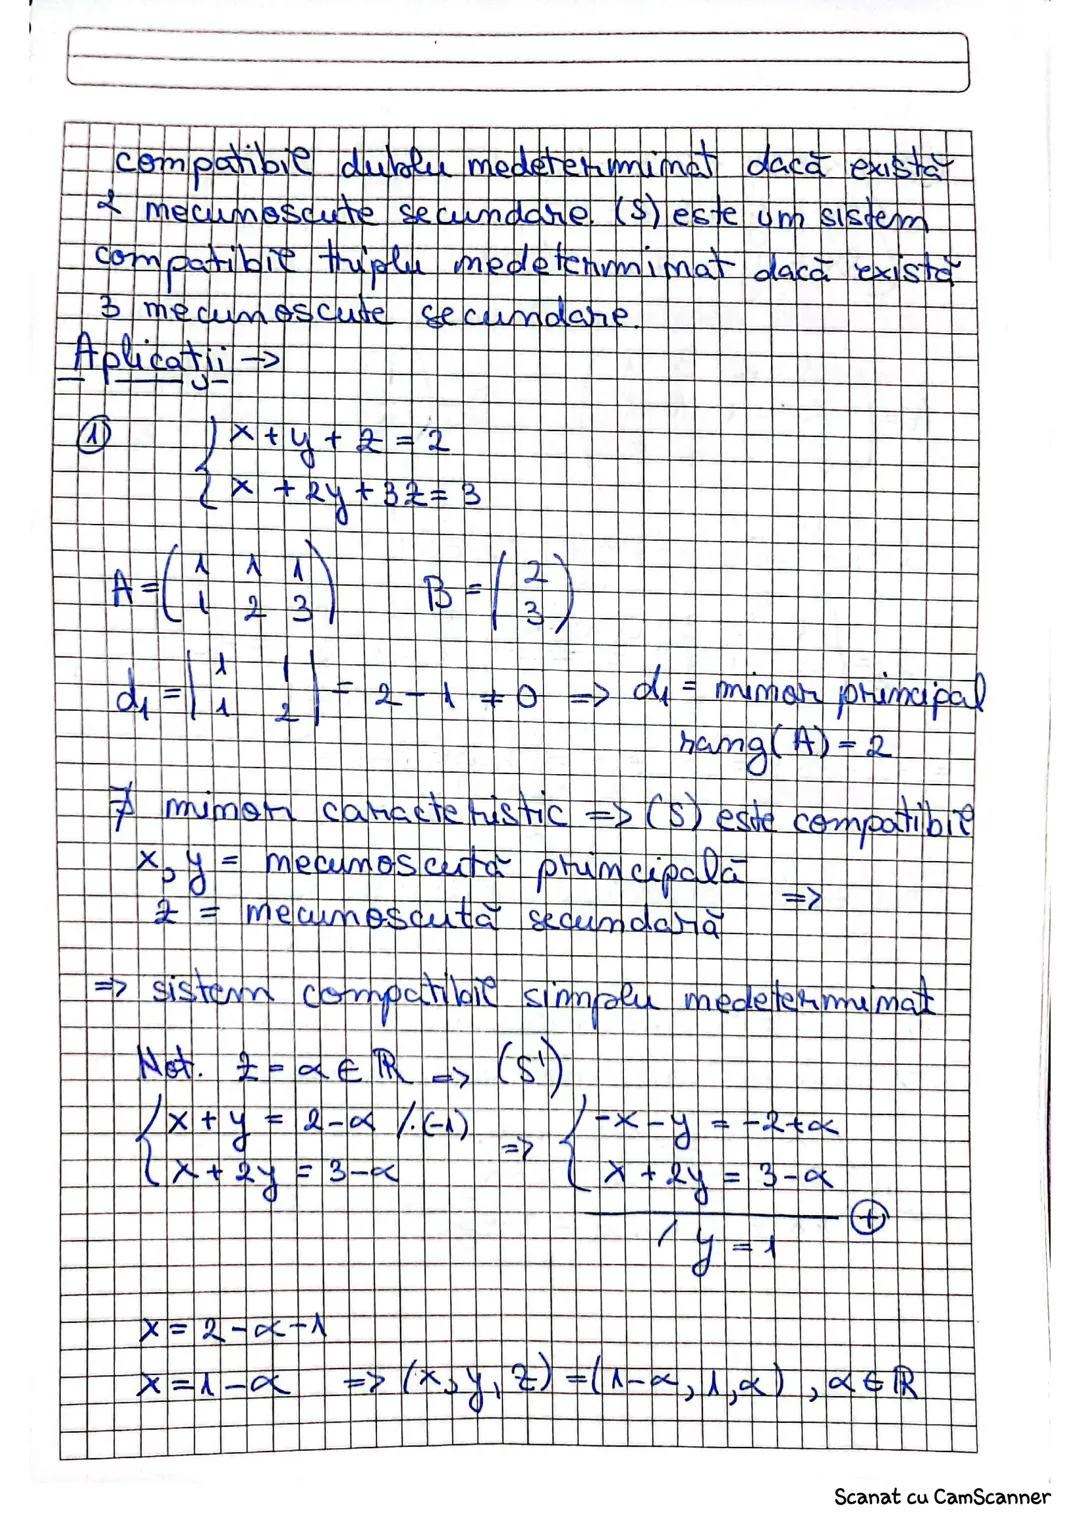 compatibil dublu nedeterminat dacă există
2 necunoscute secundare. (S) este un sistem
compatibil triplu nedeterminat dacă există
3 necunoscute secundare.
Aplicații →
① { x + y + z = 2
x + 2y + 3z = 3
A = ( 1 1 1 ; 1 2 3 ) B = ( 2 ; 3 )
d₁ = | 1 1 ; 1 2 | = 2 - 1 ≠ 0 => d₁ = minor principal
rang(A) = 2
∄ minor caracteristic => (S) este compatibil
x, y = necunoscută principală
=>
z = necunoscută secundară
=> sistem compatibil simplu nedeterminat
Not. z = α ∈ ℝ => (S')
{ x + y = 2-α /·(-1) => { -x - y = -2+α
x + 2y = 3-α x + 2y = 3-α
⊕
/ y = 1
x = 2-α-1
x = 1-α => (x, y, z) = (1-α, 1, α), α ∈ ℝ
Scanat cu CamScanner